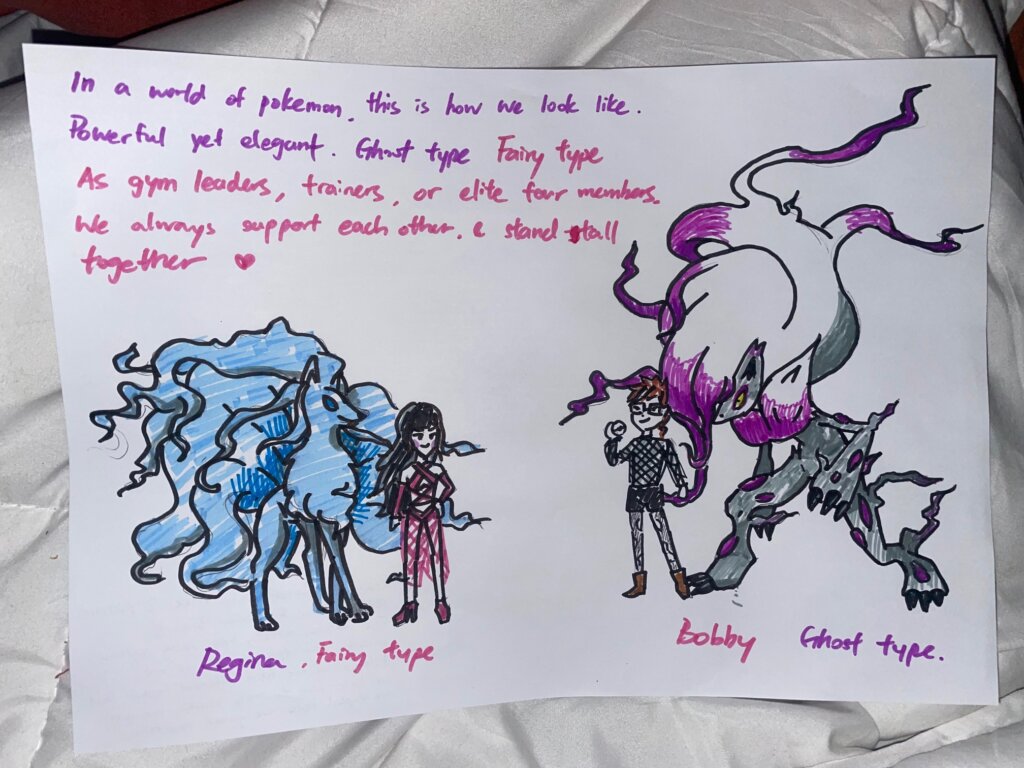 In a world of pokemon, this is how we look like.
Powerful yet elegant. Ghost type Fairy type
As gym leaders, trainers, or elite four members.
We always support each other. & stand tall
together ♥
Regina. Fairy type
Bobby Ghost type.